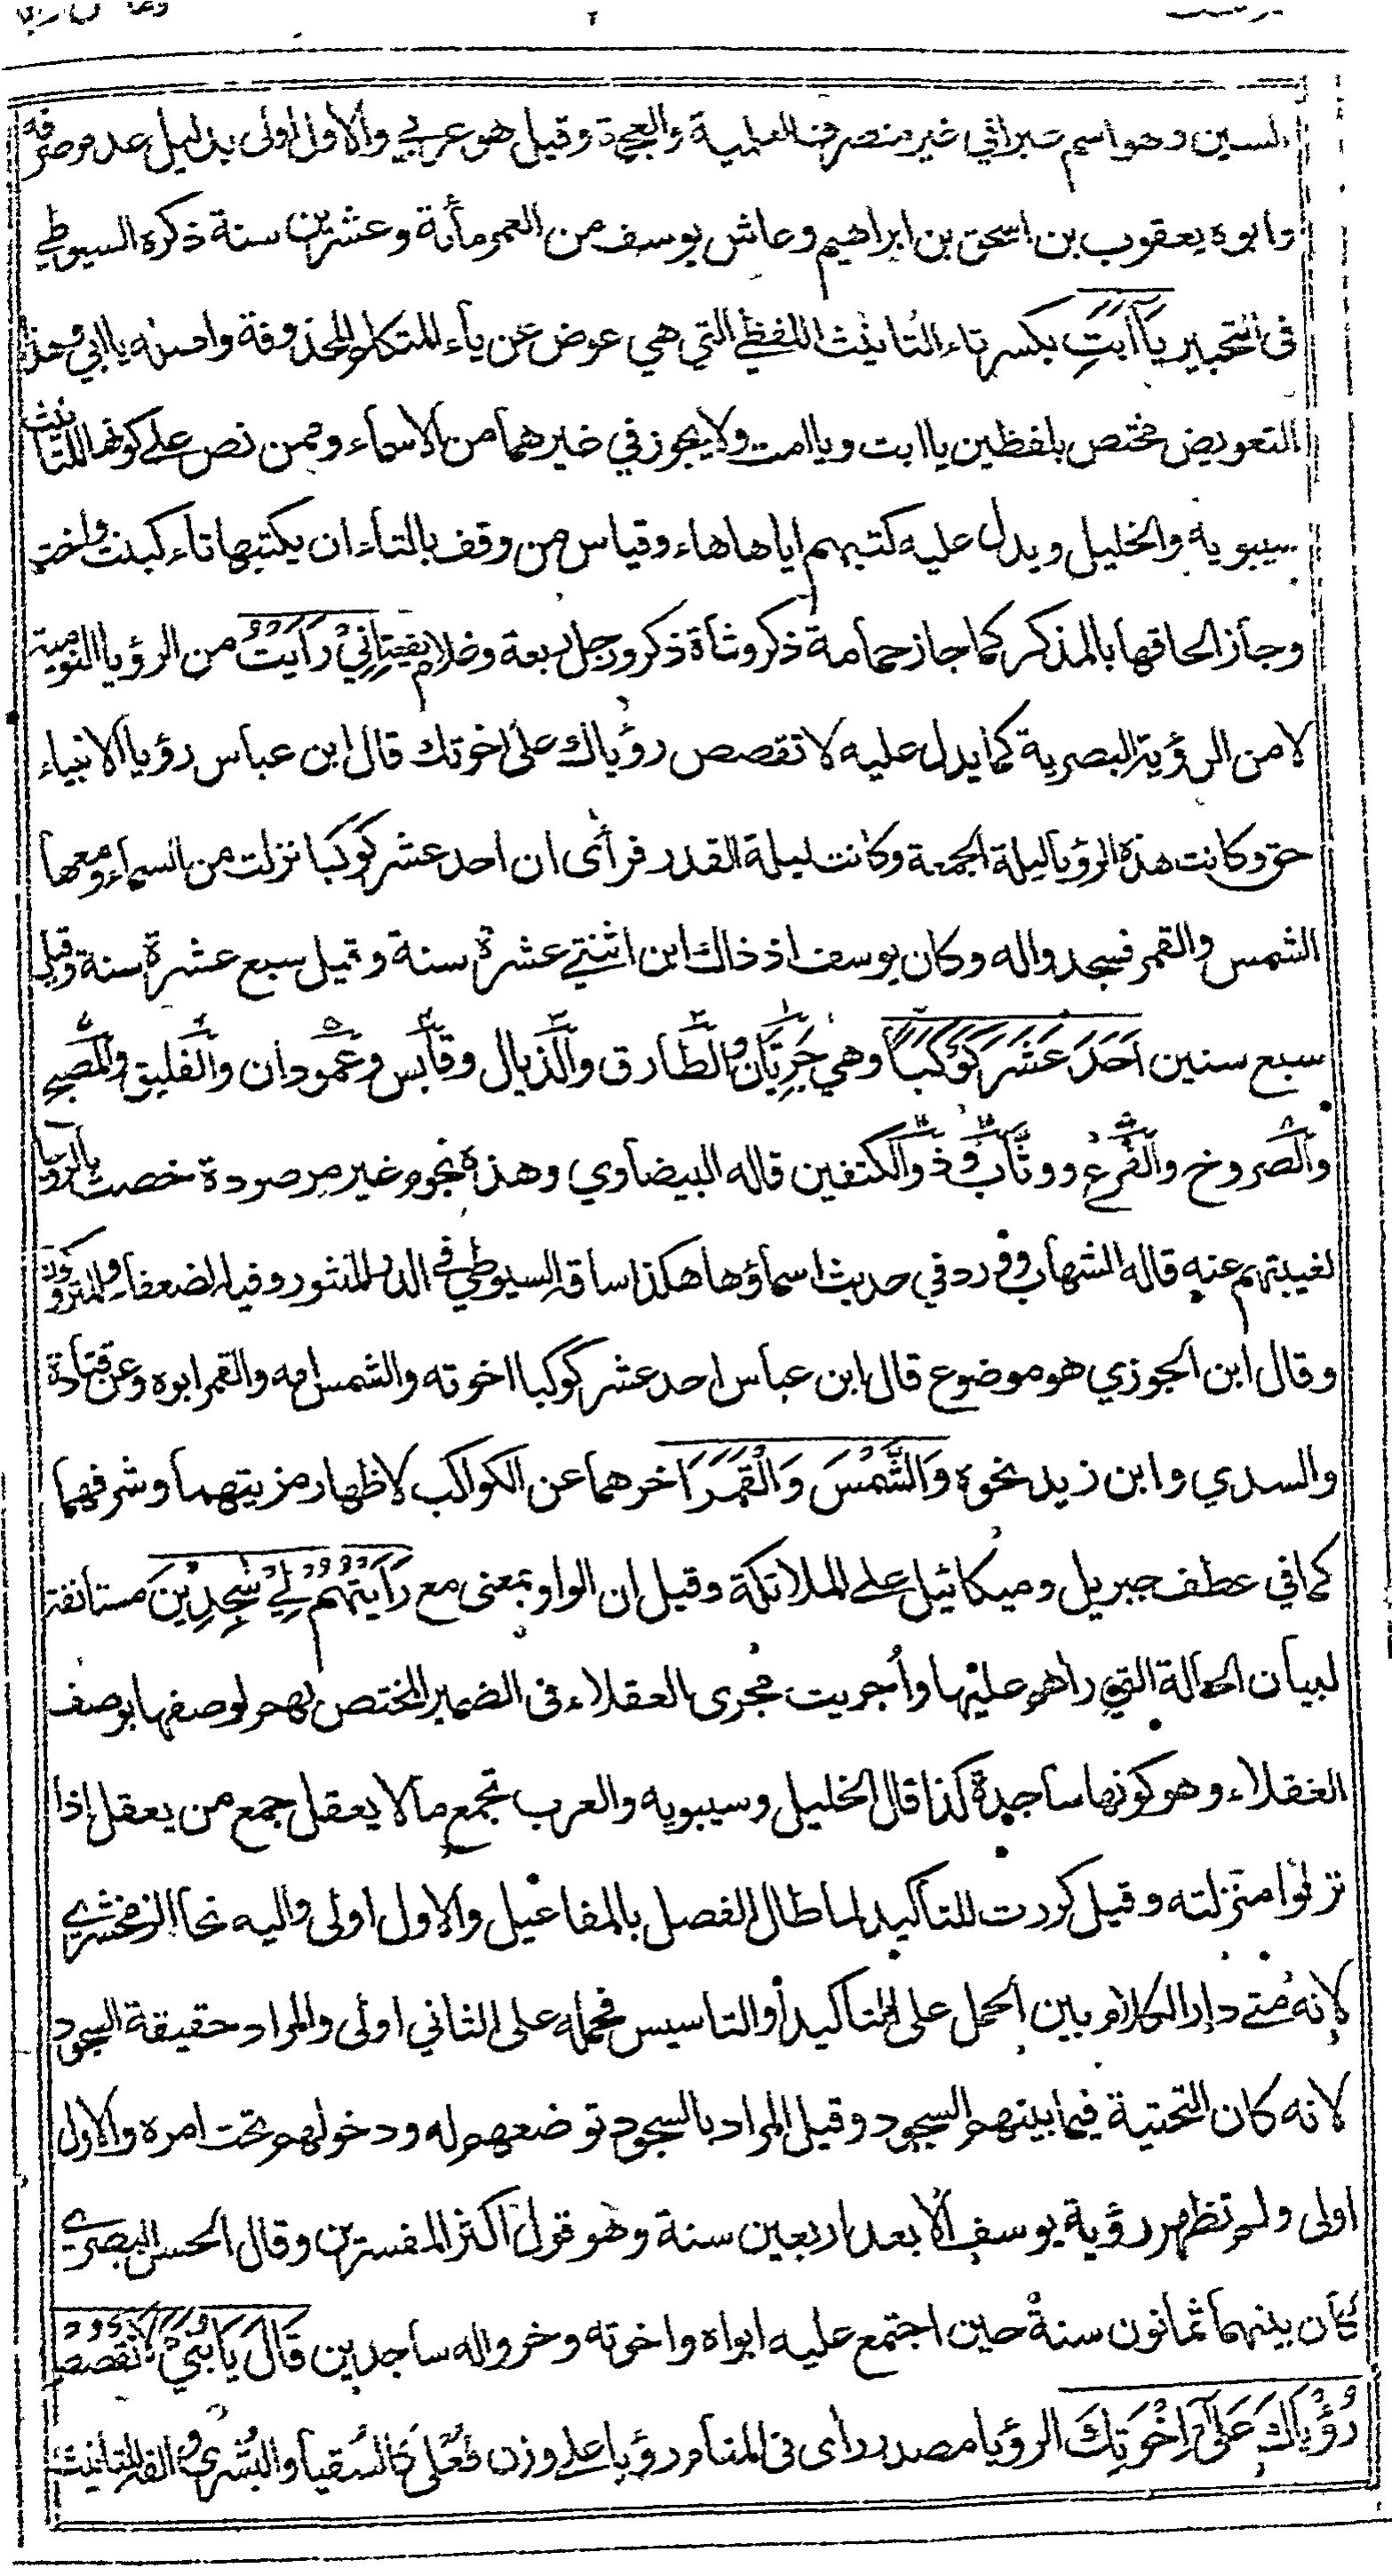 السين وهو اسم عبراني غير منصرف للعلمية والعجمة وقيل هو عربي والاول اولى بدليل عدم صرفه
وابوه يعقوب بن اسحق بن ابراهيم وعاش يوسف من العمر مأئة وعشرين سنة ذكره السيوطي
في التحبير يَآاَبَتِ بكسر تاء التانيث اللفظي التي هي عوض عن يأء المتكلم المحذوفة واصله ياابي وهذا
التعويض مختص بلفظين ياابت وياامت ولا يجوز في غيرهما من الاسماء وممن نص على كونها للتانيث
سيبويه والخليل ويدل عليه كتبهم اياها هاء وقياس من وقف بالتاء ان يكتبها تاء كبنت واخت
وجاز الحاقها بالمذكر كما جاز حمامة ذكر وشأة ذكر ورجل ربعة وغلام يفعة اِنِّيْ رَاَيْتُ من الرؤيا النومية
لا من الرؤية البصرية كما يدل عليه لا تقصص رؤياك على اخوتك قال ابن عباس رؤيا الانبياء
حق وكانت هذه الرؤيا ليلة الجمعة وكانت ليلة القدر فرأى ان احد عشر كوكبا نزلت من السماء ومعها
الشمس والقمر فسجدوا له وكان يوسف اذ ذاك ابن اثنتي عشرة سنة وقيل سبع عشرة سنة وقيل
سبع سنين اَحَدَ عَشَرَ كَوْكَبًا وهي جَرِيَّان والطارق والذيال وقابس وعمودان والفليق والمصبح
والصروخ والفرع ووثاب وذو الكتفين قاله البيضاوي وهذه نجوم غير مرصودة خصت بالرؤيا
لغيبتهم عنه قاله الشهاب وورد في حديث اسماؤها هكذا ساقه السيوطي في الدر المنثور وفيه الضعفاء والمتروكون
وقال ابن الجوزي هو موضوع قال ابن عباس احد عشر كوكبا اخوته والشمس امه والقمر ابوه وعن قتادة
والسدي وابن زيد نحوه وَالشَّمْسَ وَالْقَمَرَ اخرهما عن الكواكب لاظهار مزيتهما وشرفهما
كما في عطف جبريل وميكائيل على الملائكة وقيل ان الواو بمعنى مع رَاَيْتُهُمْ لِيْ سٰجِدِيْنَ مستانفة
لبيان الحالة التي راهم عليها وأجريت مجرى العقلاء في الضمير المختص بهم لوصفها بوصف
العقلاء وهو كونها ساجدة كذا قال الخليل وسيبويه والعرب تجمع ما لا يعقل جمع من يعقل اذا
نزلوا منزلته وقيل كررت للتأكيد لما طال الفصل بالمفاعيل والاول اولى واليه نحا الزمخشري
لانه متى دار الكلام بين الحمل على التأكيد أو التاسيس فحمله على الثاني اولى والمراد حقيقة السجود
لانه كان التحتية فيما بينهم السجود وقيل المراد بالسجود تواضعهم له ودخولهم تحت امره والاول
اولى ولم تظهر رؤية يوسف الا بعد اربعين سنة وهو قول اكثر المفسرين وقال الحسن البصري
كان بينهما ثمانون سنة حين اجتمع عليه ابواه واخوته وخروا له ساجدين قَالَ يَا بُنَيَّ لَا تَقْصُصْ
رُؤْيَاكَ عَلٰٓى اِخْوَتِكَ الرؤيا مصدر راى في المنام رؤيا على وزن فُعْلى كالسُقيا والبُشرى والفه للتانيث